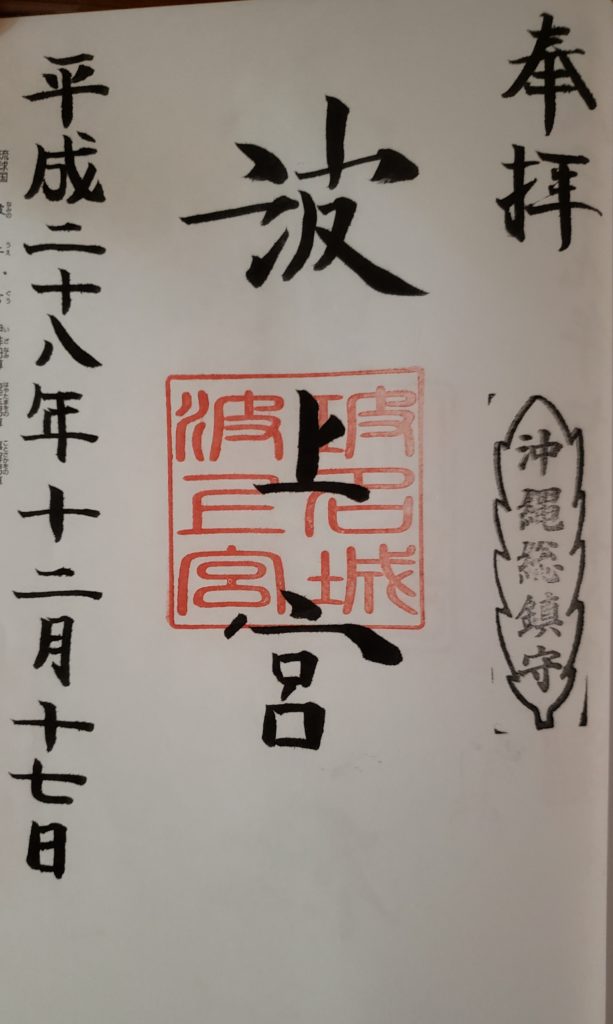 奉拝
沖縄総鎮守
波上宮
波上宮
平成二十八年十二月十七日